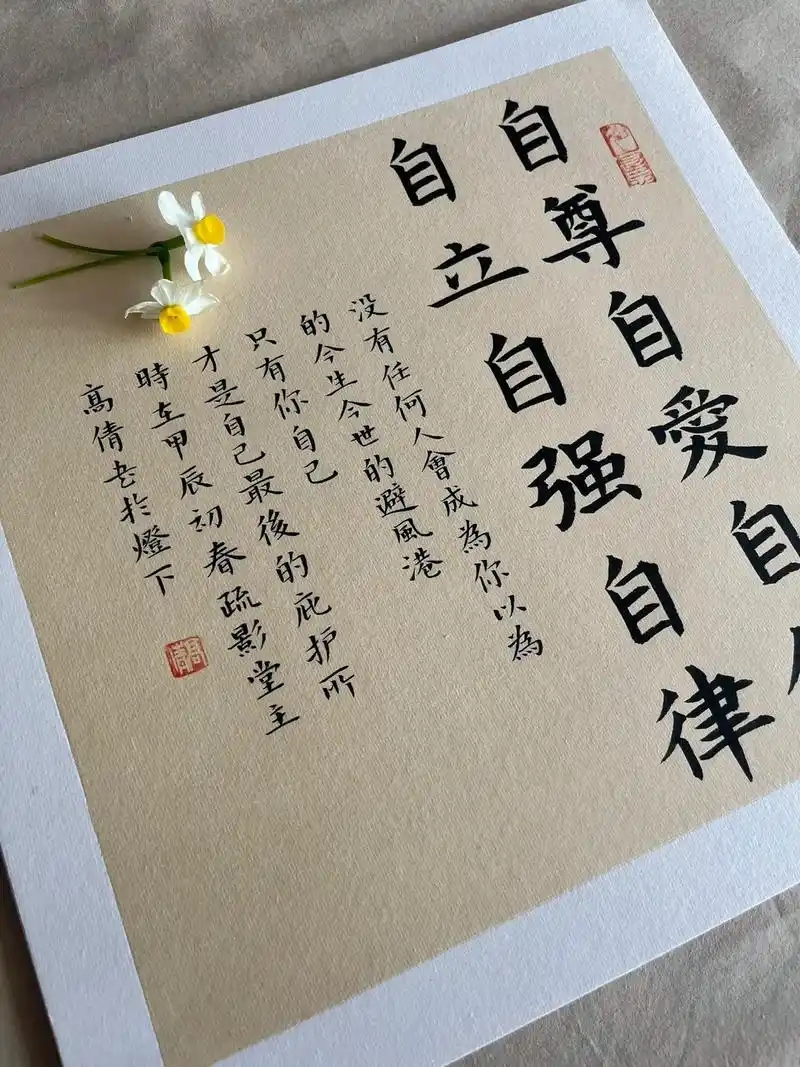 自尊自愛自
自立自强自律
没有任何人會成為你以為
的今生今世的避風港
只有你自己
才是自己最後的庇护所
時在甲辰初春疏影堂主
高倩書於燈下